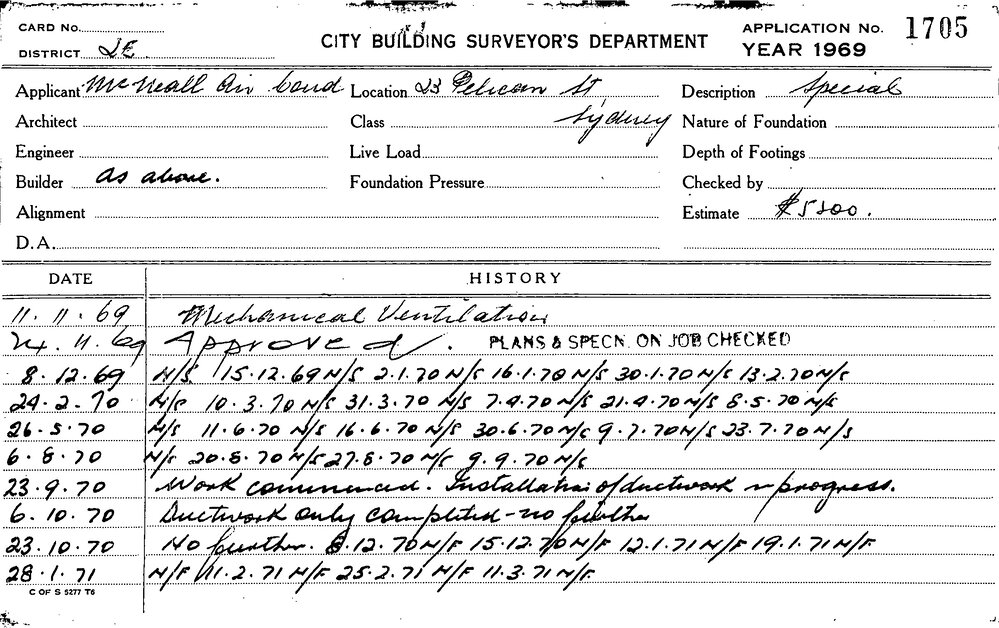 CARD No.
CITY BUILDING SURVEYOR'S DEPARTMENT
APPLICATION No. 1705
DISTRICT
YEAR 1969
Applicant McNeall Air Cond Location 23 Pelican St Sydney Description Special
Architect Class Nature of Foundation
Engineer Live Load Depth of Footings
Builder As above. Foundation Pressure Checked by
Alignment Estimate $5200.
D.A.
DATE HISTORY
11. 11. 69 Mechanical Ventilation
24. 11. 69 Approved. PLANS & SPECN. ON JOB CHECKED
8. 12. 69 N/S 15.12.69 N/S 2.1.70 N/S 16.1.70 N/S 30.1.70 N/S 13.2.70 N/S
24. 2. 70 N/S 10.3.70 N/S 31.3.70 N/S 7.4.70 N/S 21.4.70 N/S 8.5.70 N/S
26. 5. 70 N/S 11.6.70 N/S 16.6.70 N/S 30.6.70 N/S 9.7.70 N/S 23.7.70 N/S
6. 8. 70 N/S 20.8.70 N/S 27.8.70 N/S 9.9.70 N/S
23. 9. 70 Work commenced. Installation of ductwork in progress.
6. 10. 70 Ductwork only completed - no further
23. 10. 70 No further. 8.12.70 N/F 15.12.70 N/F 12.1.71 N/F 19.1.71 N/F
28. 1. 71 N/F 11.2.71 N/F 25.2.71 N/F 11.3.71 N/F
C OF S 5277 T6